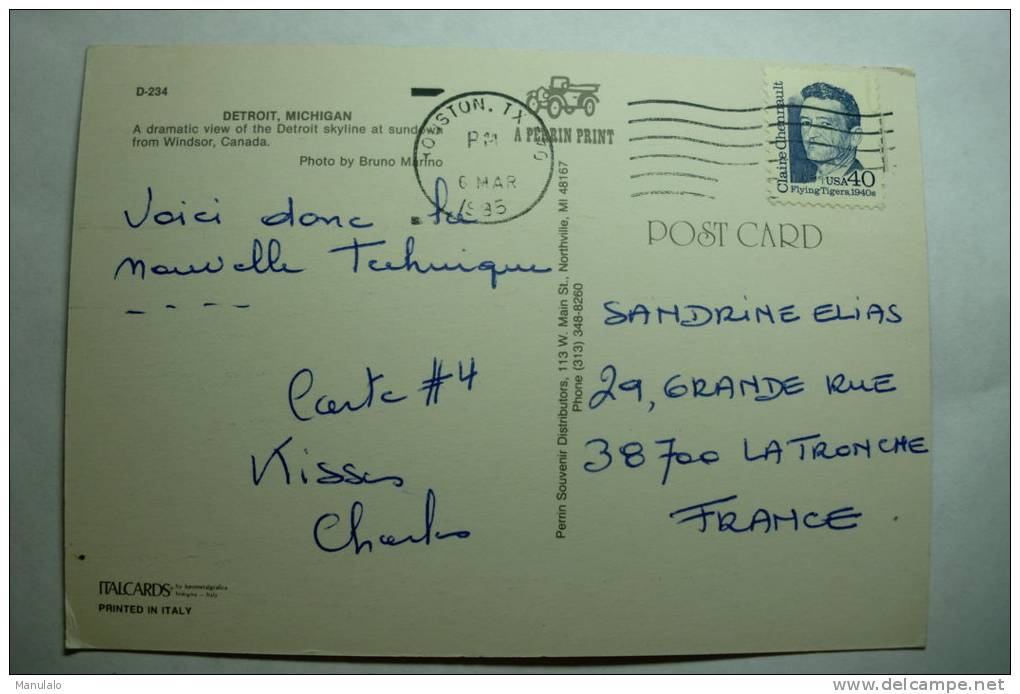 D-234
DETROIT, MICHIGAN
A dramatic view of the Detroit skyline at sundown
from Windsor, Canada.
Photo by Bruno Marino
HOUSTON, TX
PM
6 MAR
1995
A PERRIN PRINT
Claire Chennault
USA 40
Flying Tigers, 1940s
POST CARD
Voici donc la
nouvelle Technique
- - - -
Carte #4
Kisses
Charles
Perrin Souvenir Distributors, 113 W. Main St., Northville, MI 48167
Phone (313) 348-8260
SANDRINE ELIAS
29, GRANDE RUE
38700 LA TRONCHE
FRANCE
ITALCARDS
bologna - Italy
PRINTED IN ITALY
Manulalo
delcampe.net